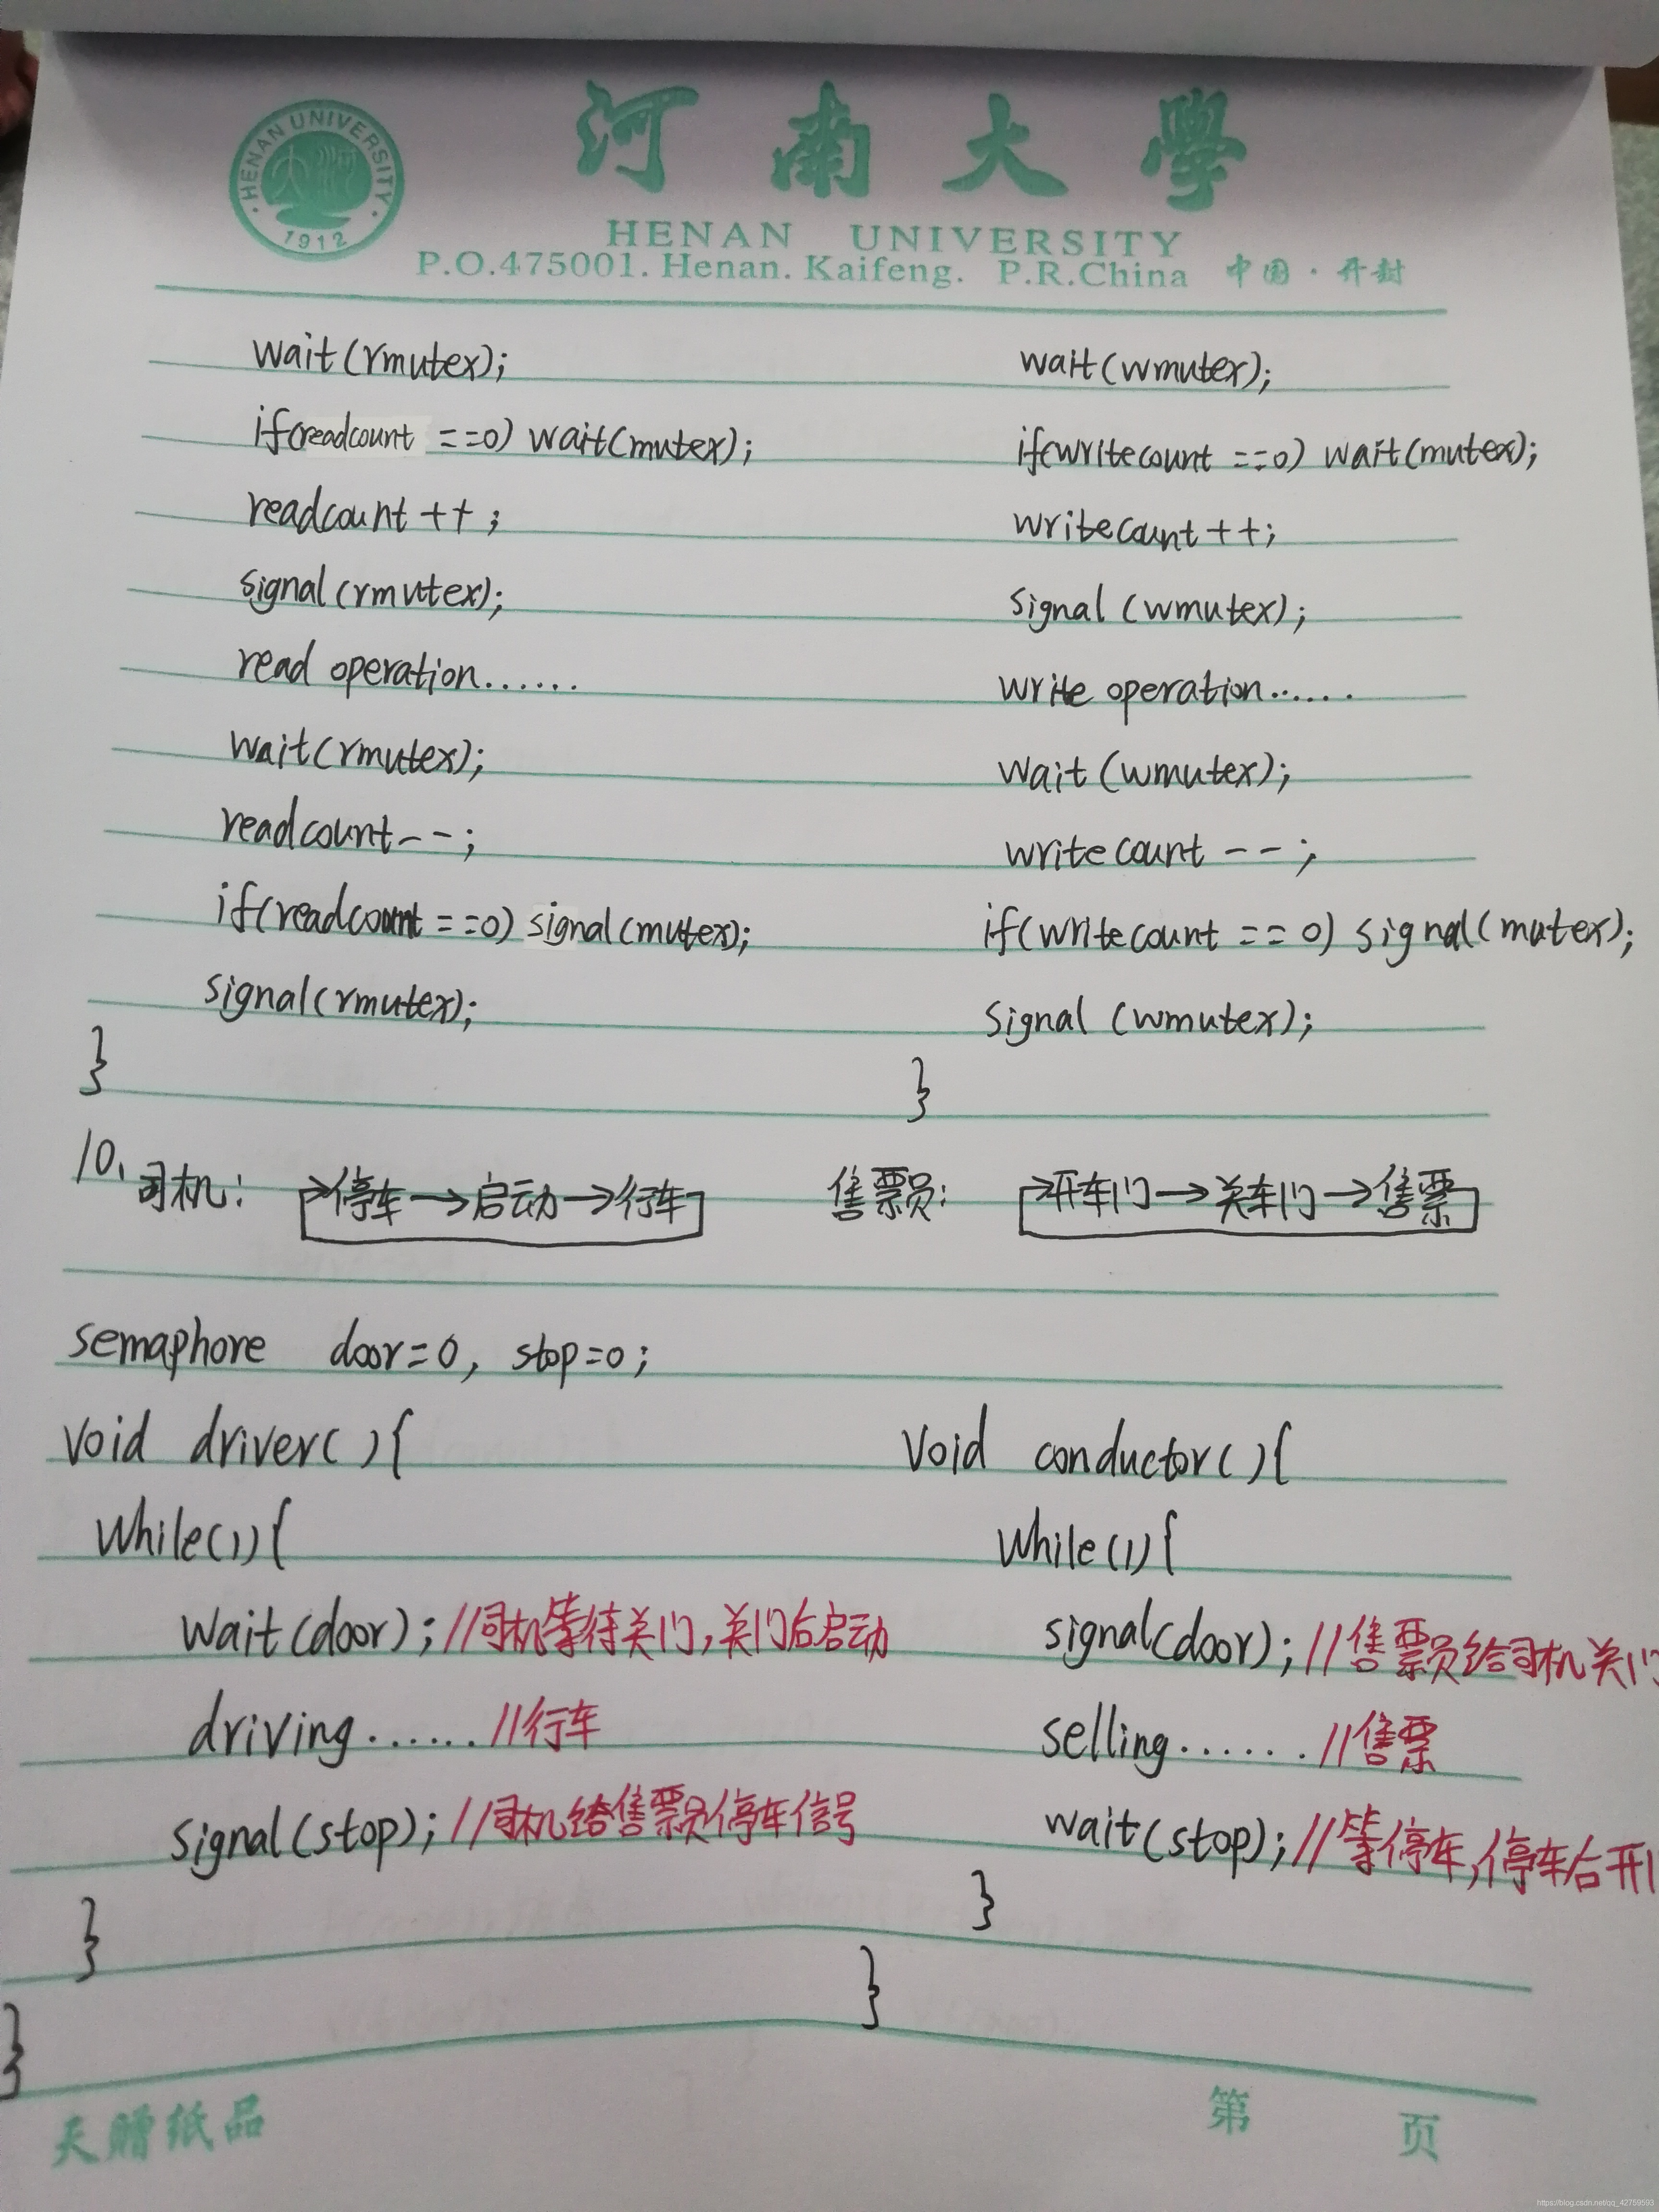 河南大學
HENAN UNIVERSITY
1912
HENAN UNIVERSITY
P.O.475001. Henan. Kaifeng. P.R.China 中国·开封
wait(rmutex); wait(wmutex);
if(readcount ==0) wait(mutex); if(writecount ==0) wait(mutex);
readcount++; writecount++;
signal(rmutex); signal(wmutex);
read operation...... write operation......
wait(rmutex); wait(wmutex);
readcount--; writecount--;
if(readcount ==0) signal(mutex); if(writecount == 0) signal(mutex);
signal(rmutex); signal(wmutex);
} }
10. 司机: →停车→启动→行车 售票员: →开车门→关车门→售票
semaphore door=0, stop=0;
void driver(){ void conductor(){
while(1){ while(1){
wait(door); //司机等待关门,关门后启动 signal(door); //售票员给司机关门
driving...... //行车 selling...... //售票
signal(stop); //司机给售票员停车信号 wait(stop); //等停车,停车后开
} }
} }
天赠纸品 第 页
https://blog.csdn.net/qq_42759593